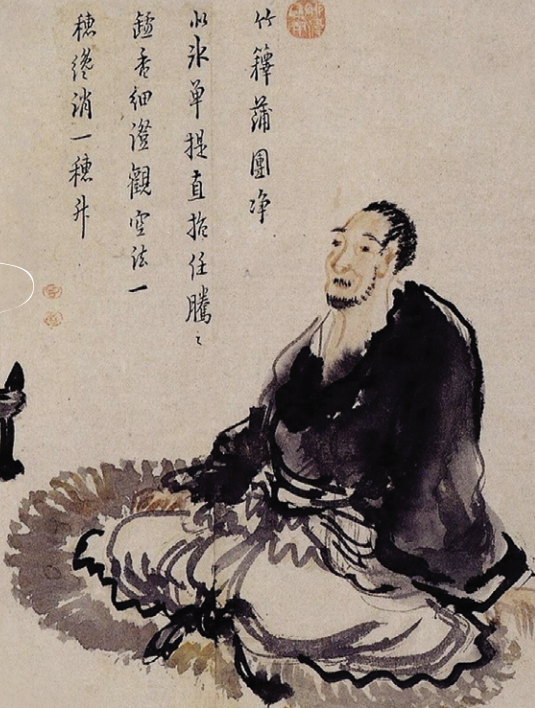 竹籜蒲團净
似氷單提直指任騰〻
鑪香細證觀空法一
穗纔消一穗升